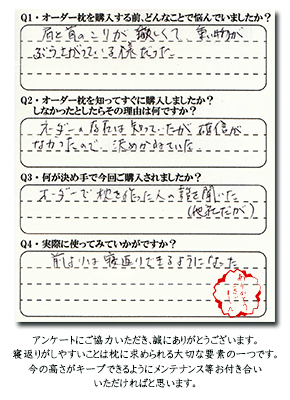 Q1・オーダー枕を購入する前、どんなことで悩んでいましたか?
肩と首のこりが激しくて 重い物が
ぶらさがっている様だった
Q2・オーダー枕を知ってすぐに購入しましたか?
しなかったとしたらその理由は何ですか?
オーダーの存在は知っていたが 確信が
なかったので、決めかねていた
Q3・何が決め手で今回ご購入されましたか?
オーダーで枕を作った人の話を聞いた
(他社だが)
Q4・実際に使ってみていかがですか?
前よりは寝返りできるようになった
アンケートにご協力いただき、誠にありがとうございます。
寝返りがしやすいことは枕に求められる大切な要素の一つです。
今の高さがキープできるようにメンテナンス等お付き合い
いただければと思います。